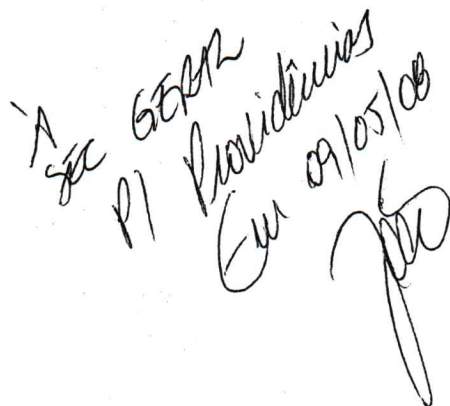 À
SEC GERAL
P/ Providências
Em 09/05/08